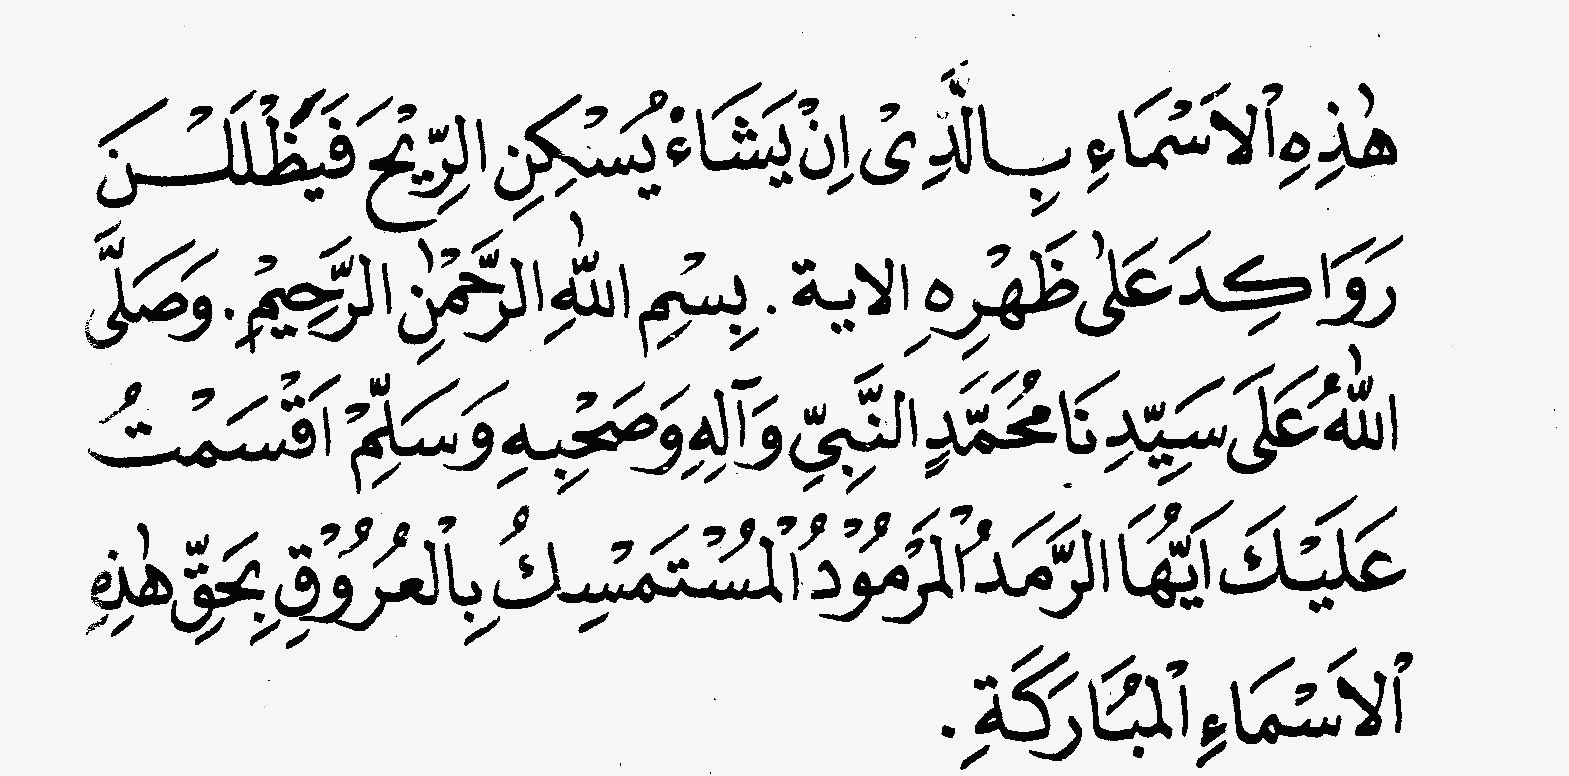 هٰذِهِ اْلاَسْمَاءِ بِالَّذِىْ اِنْ يَشَاءْ يُسْكِنِ الرِّيْحَ فَيَظْلَلْنَ
رَوَاكِدَ عَلٰى ظَهْرِهِ الاية . بِسْمِ اللهِ الرَّحْمٰنِ الرَّحِيْمِ . وَصَلَّى
اللهُ عَلَى سَيِّدِنَا مُحَمَّدٍ النَّبِيِّ وَآلِهِ وَصَحْبِهِ وَسَلِّمْ اَقْسَمْتُ
عَلَيْكَ اَيُّهَا الرَّمَدُ اْلمَرْمُوْدُ اْلمُسْتَمْسِكُ بِاْلعُرُوْقِ بِحَقِّ هٰذِهِ
اْلاَسْمَاءِ اْلمُبَارَكَةِ .